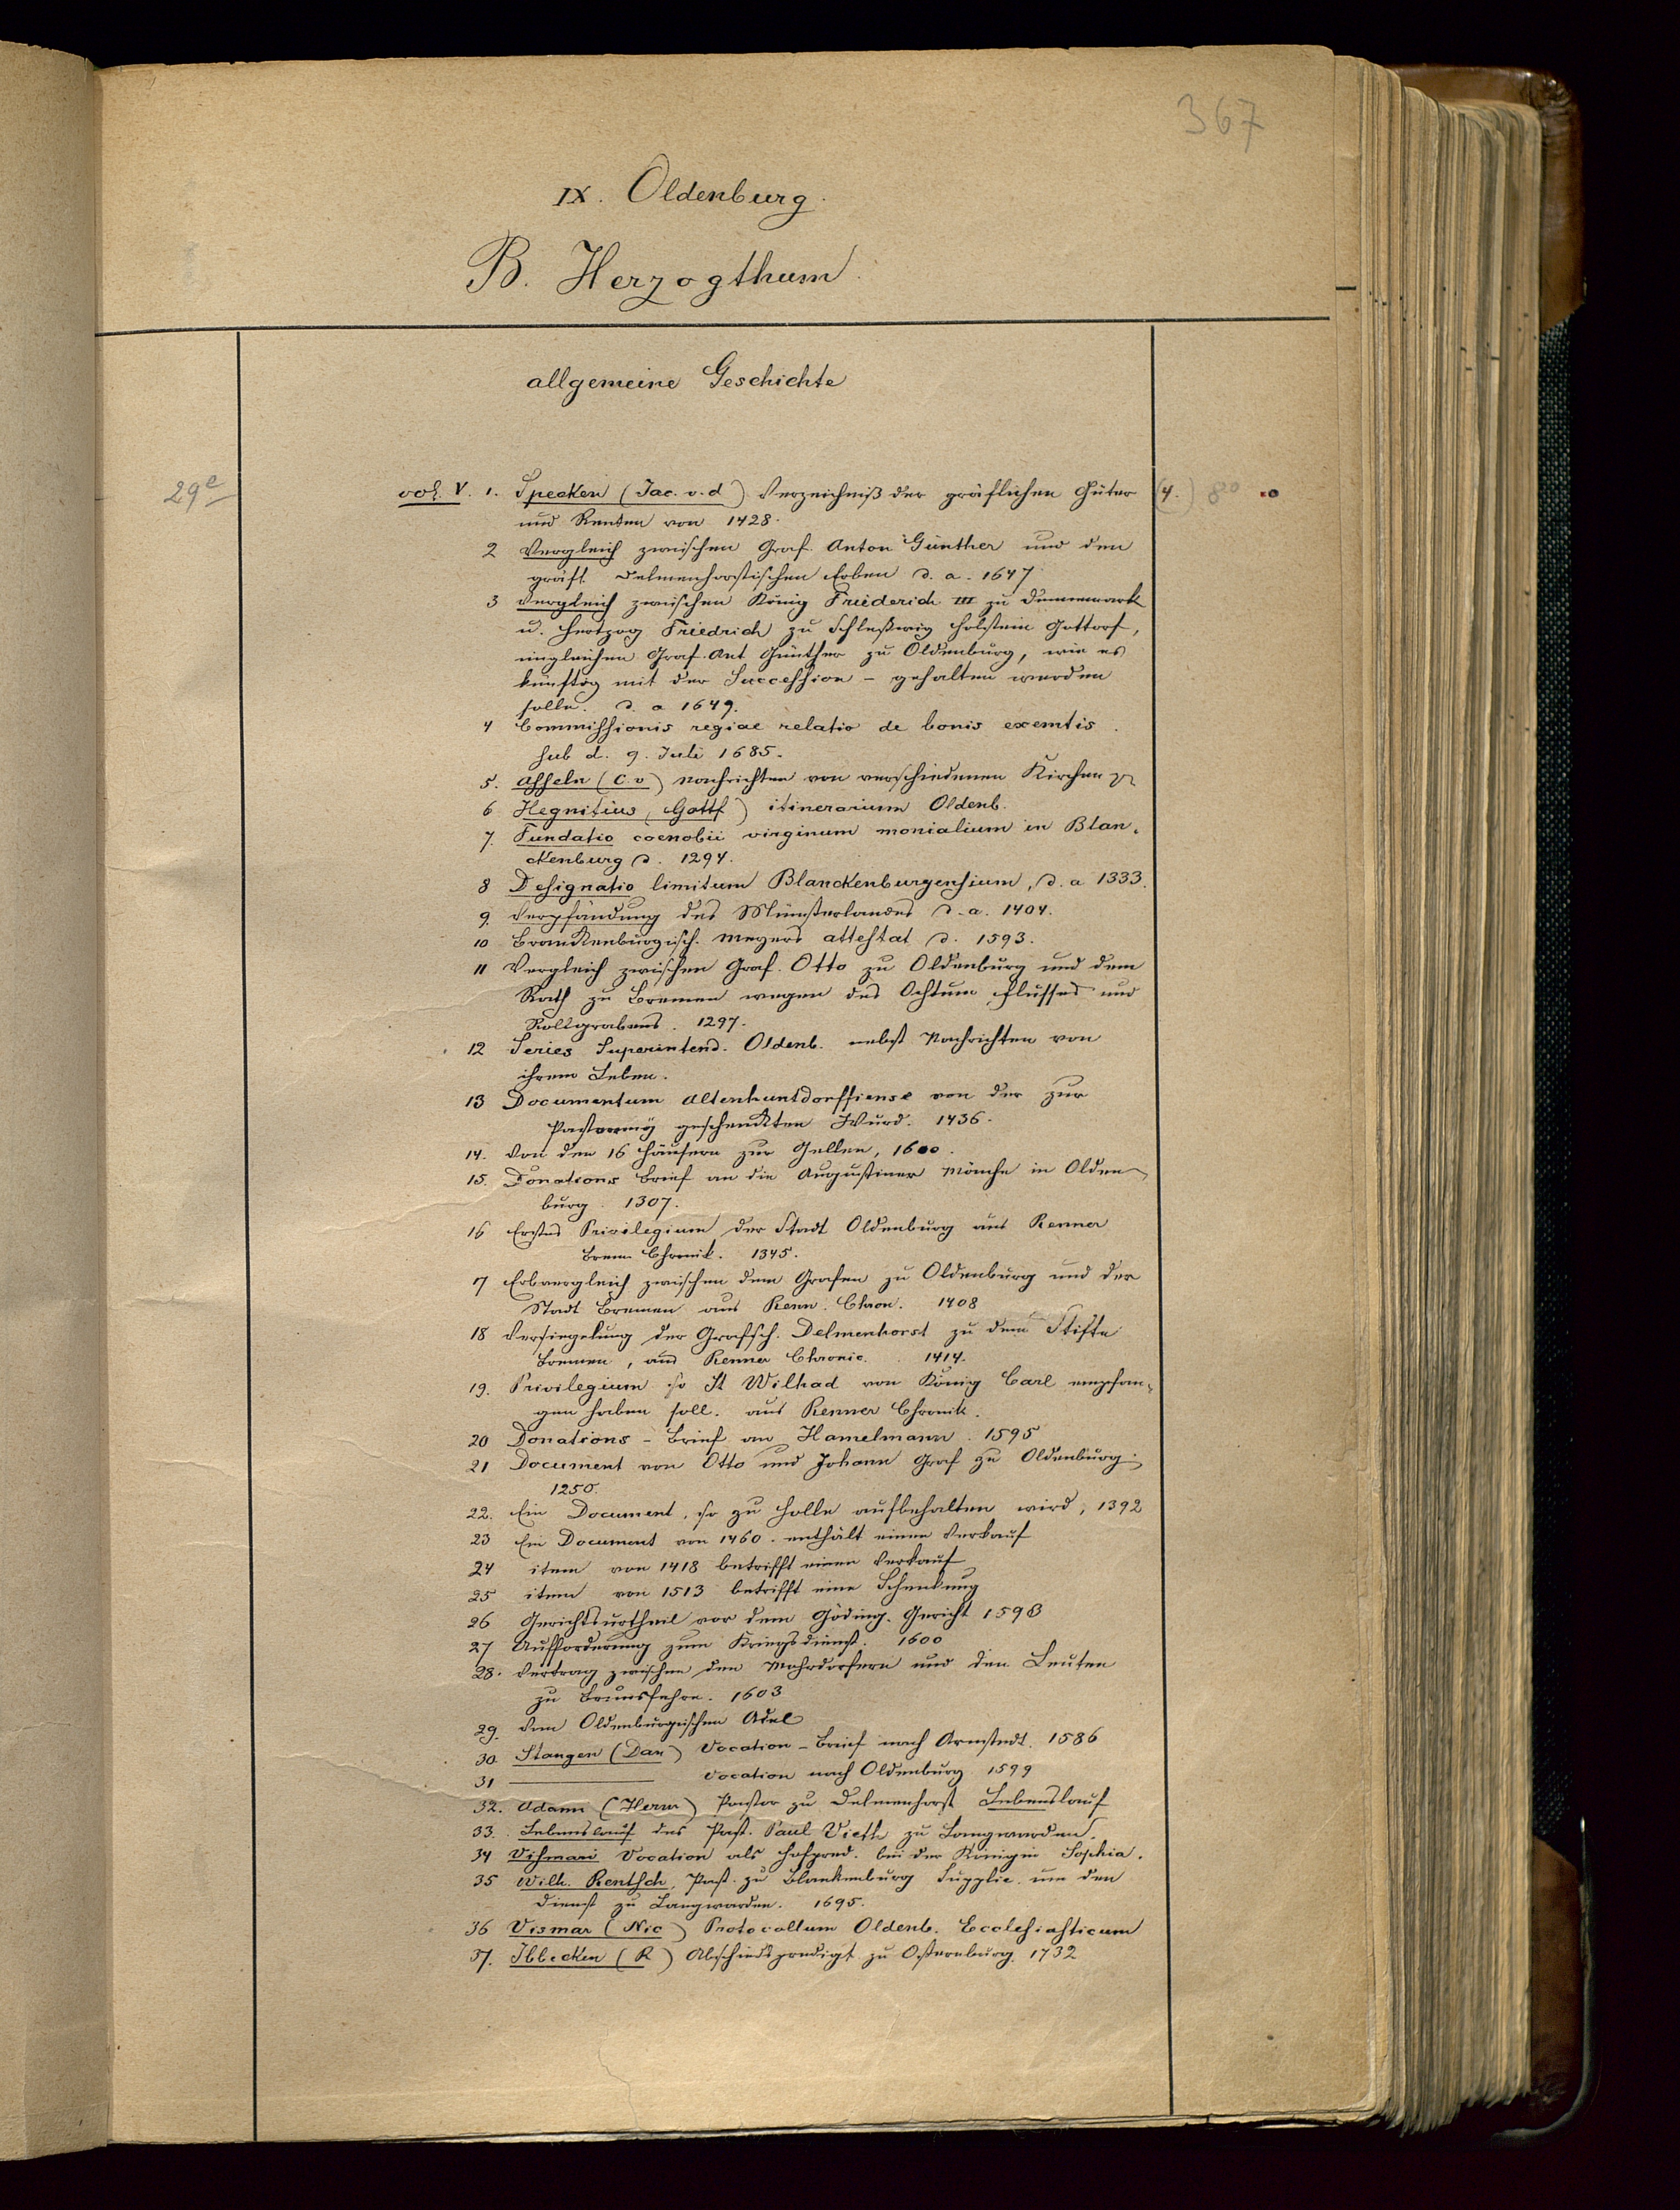 367
IX. Oldenburg.
B. Herzogthum.
allgemeine Geschichte
29e
vol. V. 1. Specken (Jac. v. d) Verzeichniß der gräflichen Güter (4.) 80
und Renten von 1428.
2 Vergleich zwischen Graf Anton Günther und den
gräfl. Delmenhorstischen Erben d. a. 1647
3 Vergleich zwischen König Friederich III zu Dennemark
u. Hertzog Friedrich zu Schleßwig Holstein Gottorf,
imgleichen Graf Ant Günther zu Oldenburg, wie es
künftig mit der Succession - gehalten werden
solle. d. a 1649.
4 Commissionis regiae relatio de bonis exemtis.
sub d. 9. Juli 1685.
5. Asseln (C. v) Nachrichten von verschiedenen Kirchen
6 Hegnitius (Gottf) itinerarium Oldenb.
7. Fundatio coenobii virginum monialium in Blan-
ckenburg d. 1294.
8 Designatio limitum Blanckenburgensium, d. a 1333.
9. Verpfändung des Münsterlandes d. a. 1404.
10 Branckenburgisch. Meyers attestat d. 1593.
11 Vergleich zwischen Graf. Otto zu Oldenburg und dem
Rath zu Bremen wegen des Ochtum Flusses und
Rollgrabens. 1297.
12 Series Superintend. Oldenb. nebst Nachrichten von
ihrem Leben.
13 Documentum Altenhuntdorffiense von der zur
Pastorey geschenkten Wurd. 1436.
14. Von den 16 Häusern zur Gellen, 1600.
15. Donations Brief an die Augustiner Mönche in Olden-
burg. 1307.
16 Erstes Privilegium der Stadt Oldenburg aus Renner
Brem Chronik. 1345.
17 Erbvergleich zwischen dem Grafen zu Oldenburg und der
Stadt Bremen aus Renn. Chron. 1408
18 Versiegelung der Grafsch. Delmenhorst zu dem Stifte
Bremen, aus Renner Chronic. 1414.
19. Privilegium so St Wilhad von König Carl empfan-
gen haben soll. aus Renner Chronik.
20 Donations - Brief an Hamelmann. 1595
21 Document von Otto und Johann Graf zu Oldenburg
1250.
22. Ein Document, so zu Holle aufbehalten wird, 1392
23 Ein Document von 1460. enthält einen Verkauf
24 item von 1418 betrifft einen Verkauf
25 item von 1513 betrifft eine Schenkung
26 Gerichtsurtheil vor dem Göding. Gericht 1593
27 Aufforderung zum Kriegsdienst. 1600
28. Vertrag zwischen den Mohrdorfern und den Leuten
zu 1603
29. Vom Oldenburgischen Adel
30. Stangen (Dan) Vocation - Brief nach Armstedt. 1586
31 ——— Vocation nach Oldenburg 1599
32. Adami (Herm) Pastor zu Delmenhorst Lebenslauf
33. Lebenslauf des Past. Paul Vieth zu Langwarden.
34 Vismari Vocation als Hofpred. bei der Königin Sophia.
35 Wilh. Rentsch, Past. zu Blankenburg Supplic. um den
Dienst zu Langwarden. 1695.
36 Vismar (Nic) Protocollum Oldenb. Ecclesiasticum
37. Ibbecken (R) Abschiedspredigt zu Osternburg. 1732